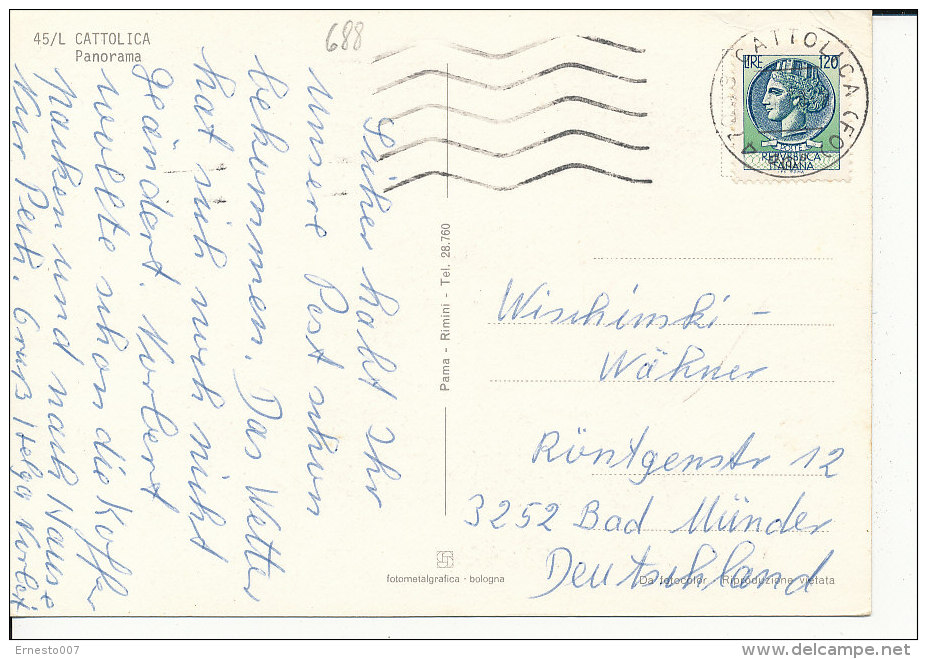 45/L CATTOLICA
Panorama
688
CATTOLICA (FO)
LIRE 120
POSTE
REPVBBLICA
ITALIANA
Sicher habt Ihr
unsere Post schon
bekommen. Das Wetter
hat sich noch nicht
geändert. Norbert
wollte schon die Koffer
packen und nach Hause
Nur Pech. Gruß Helga Norbert
Pama - Rimini - Tel. 28.760
Wischinski -
Wähner
Röntgenstr 12
3252 Bad Münder
Deutschland
fotometalgrafica - bologna
Da fotocolor Riproduzione vietata
Ernesto007
www.delcampe.net